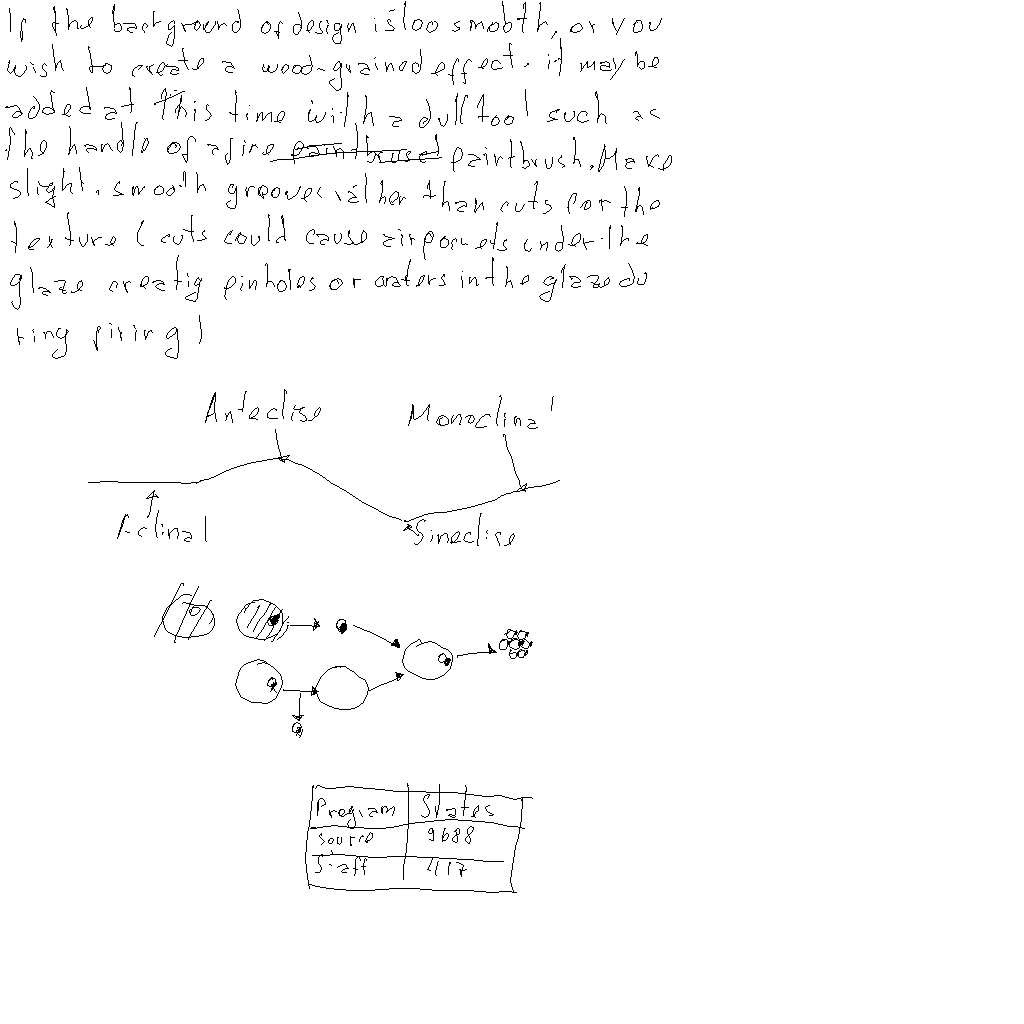 If the background of design is too smooth, or you
wish to create a wood-grained effect. it may be
added at this time with a dull tool such as
the handle of a fine paintbrush. Make
slight. smooth grooves rather than cuts for the
texture (cuts could cause air pockets under the
glaze creatig pinholes or craters in the glaze du
ring firing)
Anteclise Monoclinal
Aclinal Sineclise
Program States
source 9688
Staff 417